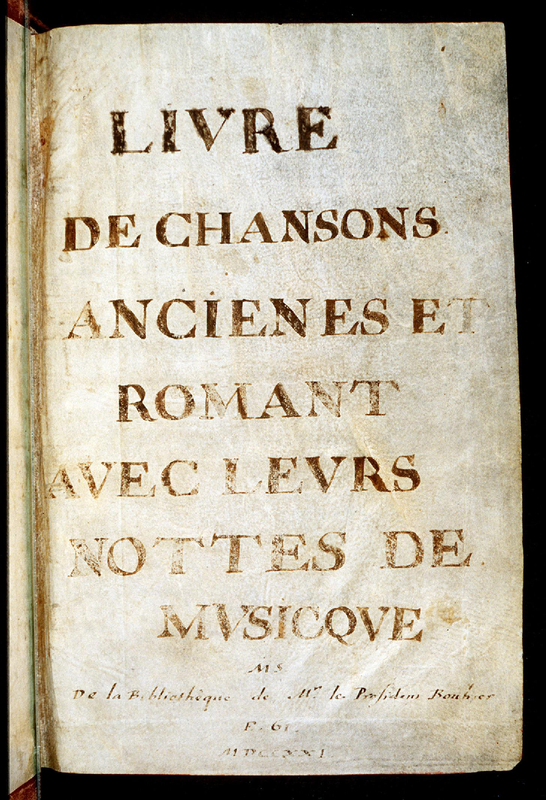 LIVRE
DE CHANSONS
ANCIENES ET
ROMANT
AVEC LEVRS
NOTTES DE
MVSICQVE
MS
De la Bibliothêque de Mr. le Præsident Bouhier
E. 61.
MDCCXXI.